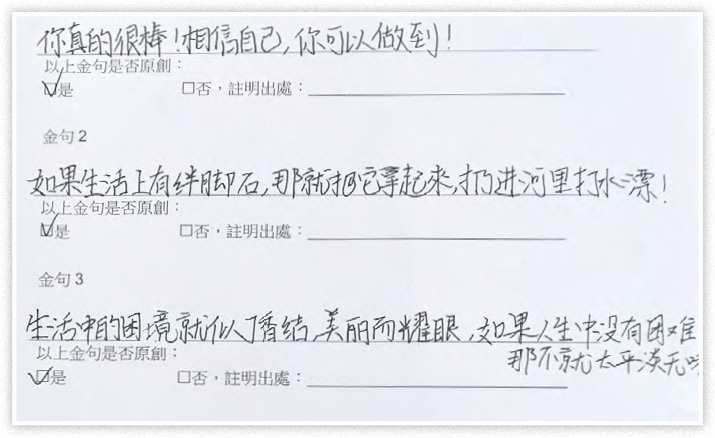 你真的很棒！相信自己，你可以做到！
以上金句是否原創：
☑是 □否，註明出處：
金句 2
如果生活上有绊脚石，那就把它拿起來，扔进河里打水漂！
以上金句是否原創：
☑是 □否，註明出處：
金句 3
生活中的困境就似丁香结，美丽而耀眼，如果人生中没有困难
那不就太平淡无味
以上金句是否原創：
☑是 □否，註明出處：